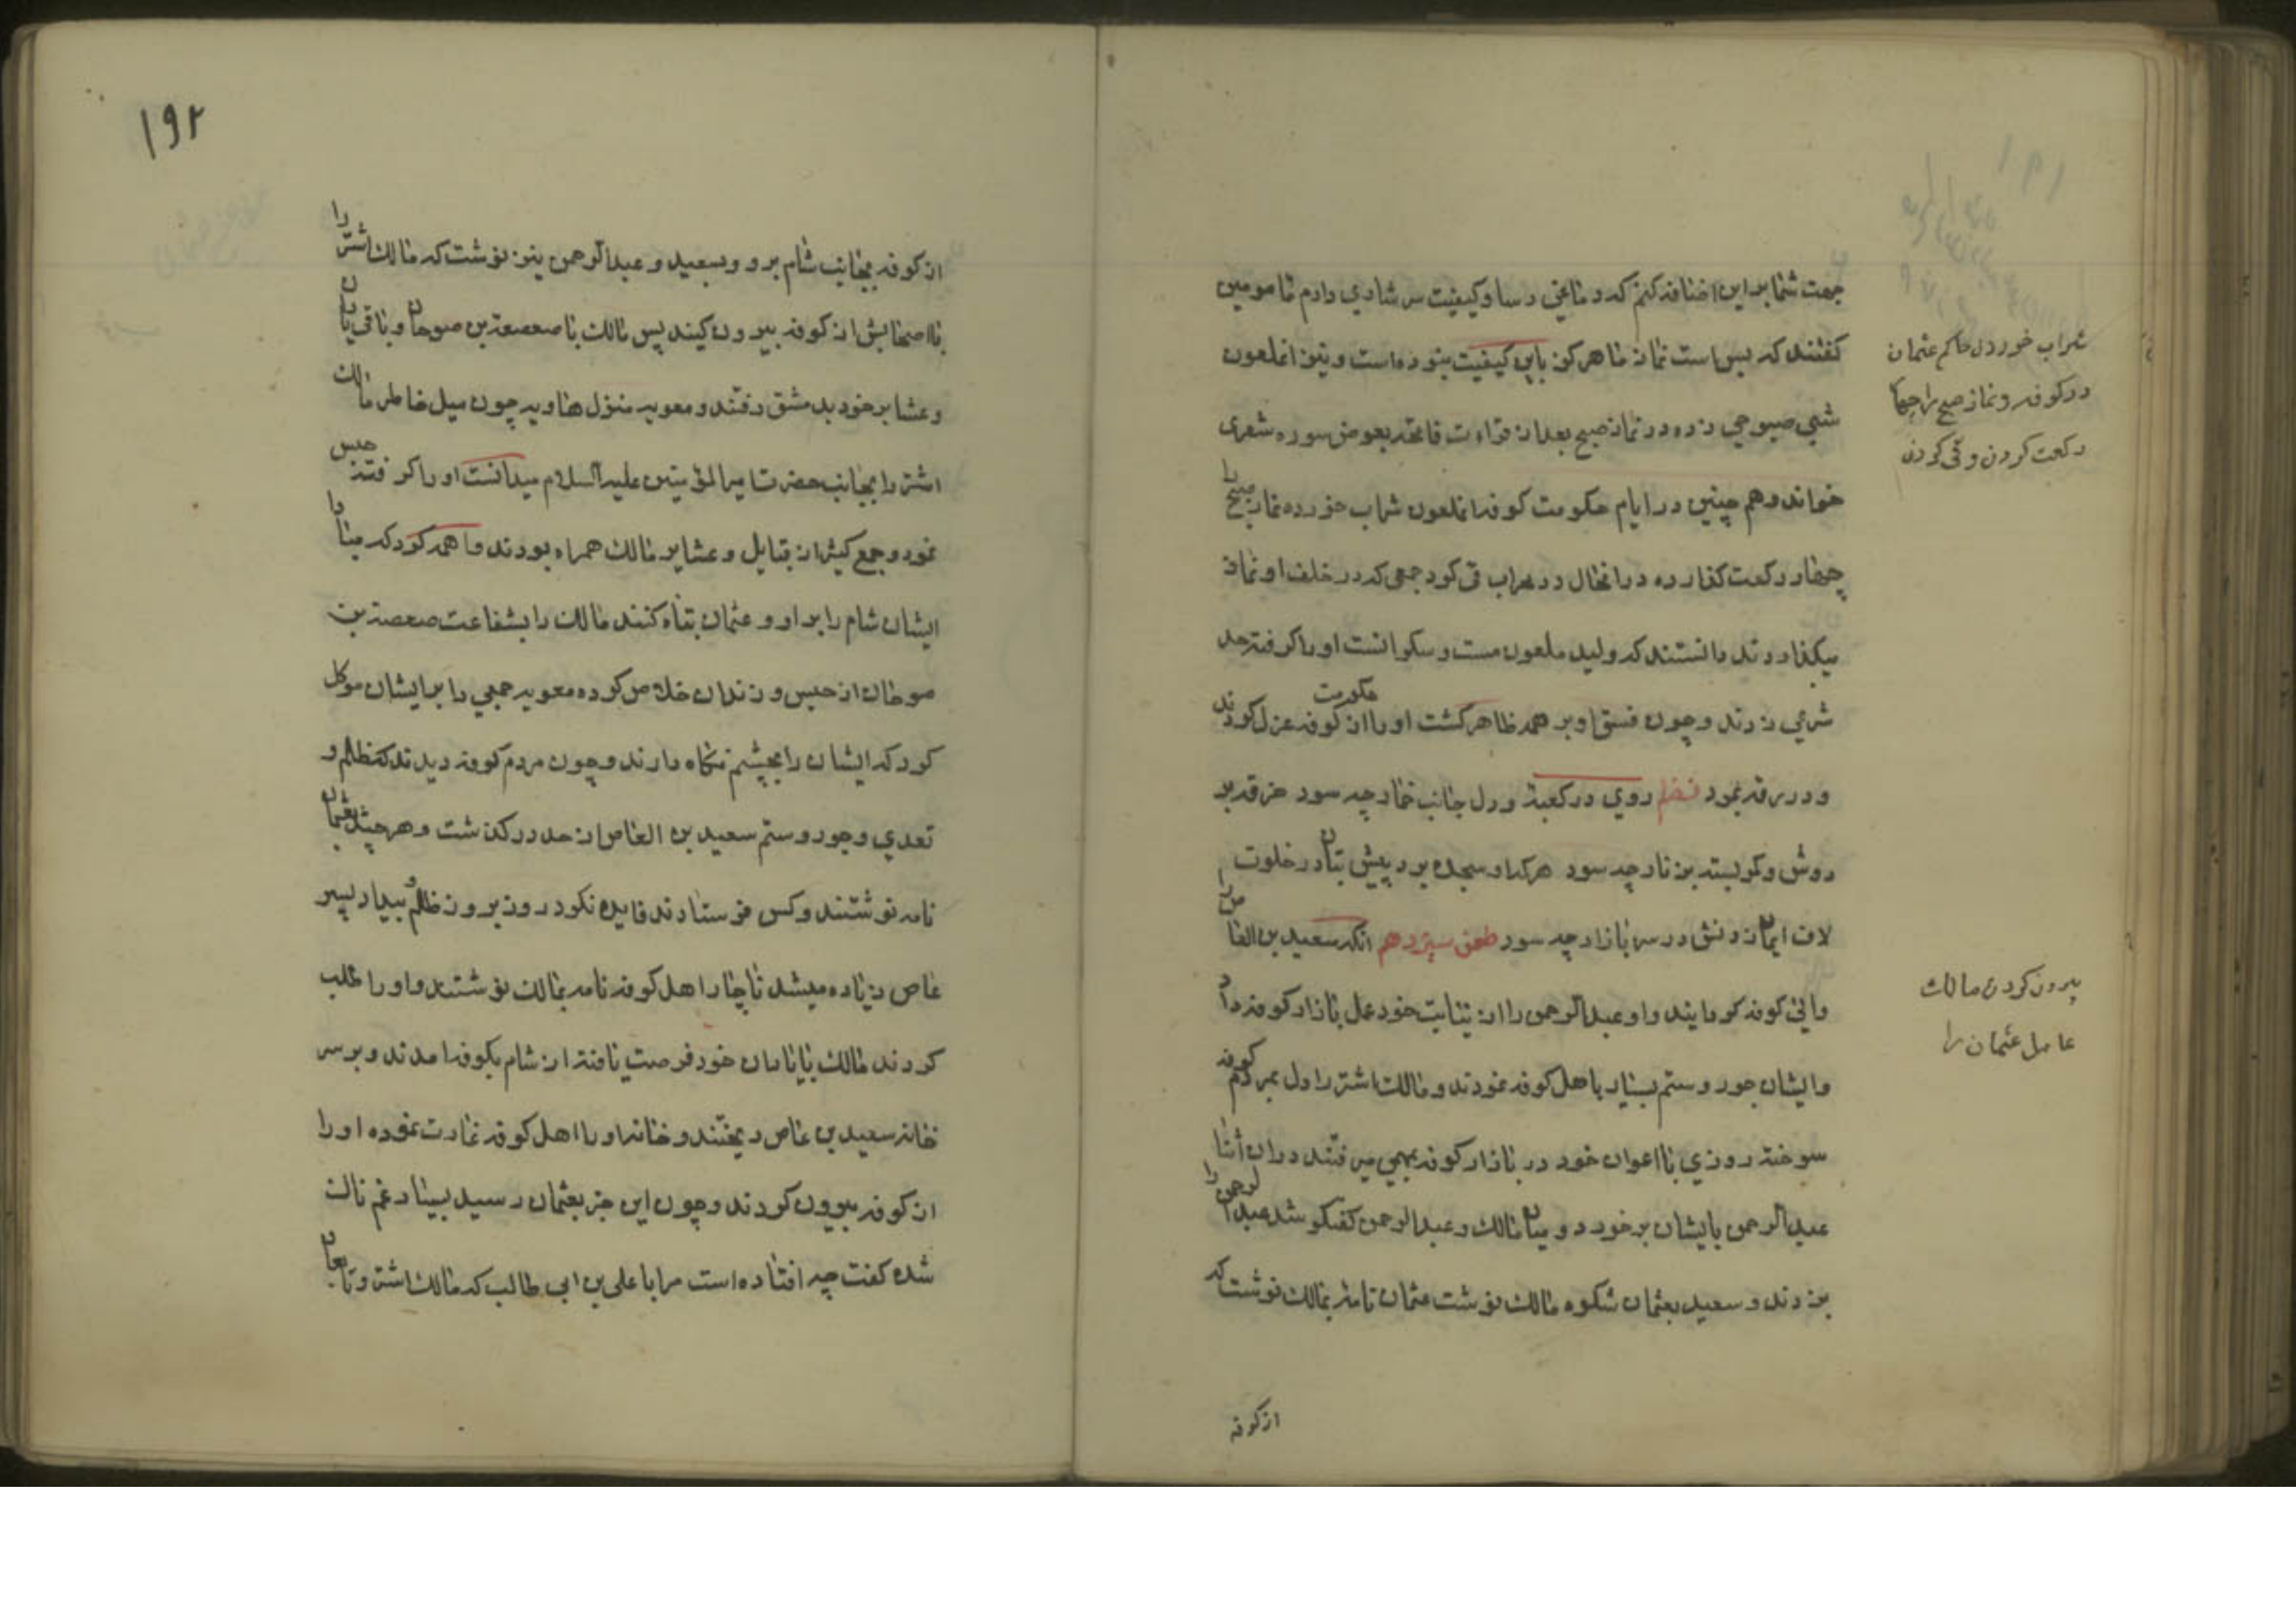 جهت شما بر این اضافه کنم که دماغی رسا و کیفیت سرشاری دارم مامومین
کفتند که بس است نماز ما هرکز باین کیفیت نبوده است و نیز انملعون
شبی صبوحی زده در نماز صبح بعد از قراءت فاتحه بعوض سوره شعری
خواند و هم چنین در ایام حکومت کوفه انملعون شراب خورده نماز صبح را
چهار رکعت کذارده در انحال در محراب قی کرد جمعی که در خلف او نماز
میکذاردند دانستند که ولید ملعون مست و سکرانست او را کرفته حد
شرعی زدند و چون فسق او بر همه ظاهر کشت او را از حکومت کوفه عزل کردند
و در رقه نمود نظم روی در کعبه و دل جانب خمار چه سود خرقه بر
دوش و کمر بسته بزنار چه سود هر که او سجده برد پیش بتان در خلوت
لاف ایمان زدنش در سر بازار چه سود طعن سیزدهم انکه سعید بن العاص را
والی کوفه کردانید و او عبدالرحمن را از نیابت خود عمل بازار کوفه داد
و ایشان جور و ستم بسیار باهل کوفه نمودند و مالک اشتر را دل بمردم کوفه
سوخته روزی با اعوان خود در بازار کوفه بهمی میرفتند در ان اثنا
عبدالرحمن بایشان برخورد و میان مالک و عبدالرحمن کفتکو شد عبدالرحمن را
بزدند و سعید بعثمان شکوه مالک نوشت عثمان نامه بمالک نوشت که
از کوفه
شراب خوردن حاکم عثمان
در کوفه و نماز صبح را چهار
رکعت کردن و قی کردن
بیرون کردن مالک
عامل عثمان را
۱۹۲
از کوفه بجانب شام برو و بسعید و عبدالرحمن نیز نوشت که مالک اشتر را
با اصحابش از کوفه بیرون کنید پس مالک با صعصعة بن صوحان و باقی یاران
و عشایر خود بدمشق رفتند و معویه منزل هاویه چون میل خاطر مالک
اشتر را بجانب حضرت امیرالمؤمنین علیه السلام میدانست او را کرفته حبس
نمود و جمع کثیر از قبایل و عشایر مالک همراه بودند واهمه کرد که مبادا
ایشان شام را بر او و عثمان تباه کنند مالک را بشفاعت صعصعة بن
صوحان از حبس و زندان خلاص کرده معویه جمعی را بر ایشان موکل
کرد که ایشان را بچشم نکاه دارند و چون مردم کوفه دیدند که ظلم و
تعدی و جور و ستم سعید بن العاص از حد در کذشت و هر چند بعثمان
نامه نوشتند و کس فرستادند فایده نکرد روز بروز ظلم و بیداد پسر
عاص زیاده میشد ناچار اهل کوفه نامه بمالک نوشتند و او را طلب
کردند مالک با یاران خود فرصت یافته از شام بکوفه امدند و بر سر
خانه سعید بن عاص ریختند و خانه او را اهل کوفه غارت نموده او را
از کوفه بیرون کردند و چون این خبر بعثمان رسید بسیار غم ناک
شده کفت چه افتاده است مرا با علی بن ابی طالب که مالک اشتر و تابعان